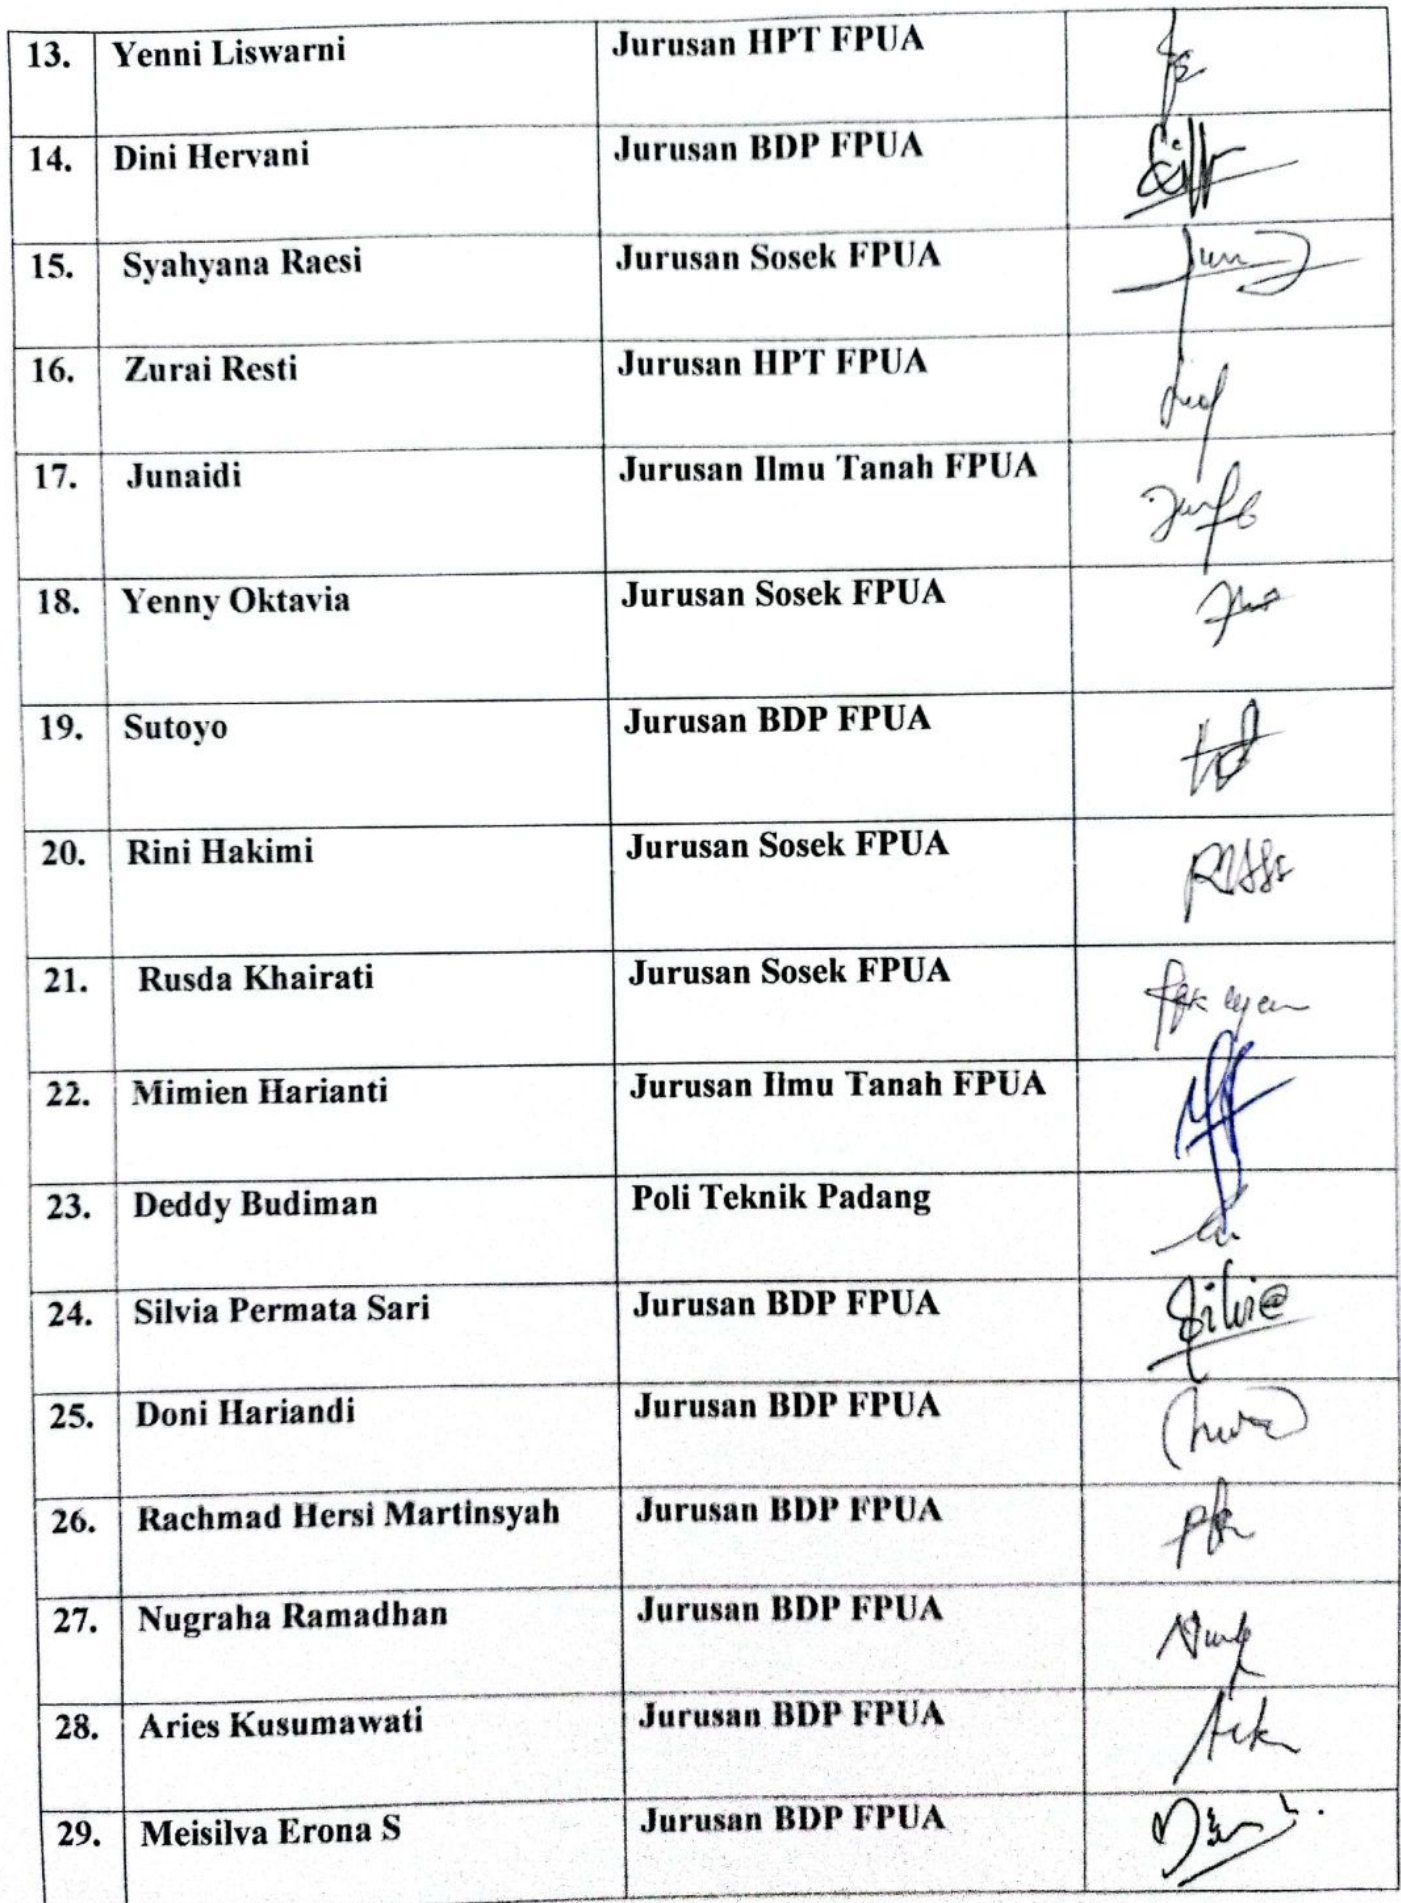 13. Yenni Liswarni Jurusan HPT FPUA
14. Dini Hervani Jurusan BDP FPUA
15. Syahyana Raesi Jurusan Sosek FPUA
16. Zurai Resti Jurusan HPT FPUA
17. Junaidi Jurusan Ilmu Tanah FPUA
18. Yenny Oktavia Jurusan Sosek FPUA
19. Sutoyo Jurusan BDP FPUA
20. Rini Hakimi Jurusan Sosek FPUA
21. Rusda Khairati Jurusan Sosek FPUA
22. Mimien Harianti Jurusan Ilmu Tanah FPUA
23. Deddy Budiman Poli Teknik Padang
24. Silvia Permata Sari Jurusan BDP FPUA Silvi@
25. Doni Hariandi Jurusan BDP FPUA
26. Rachmad Hersi Martinsyah Jurusan BDP FPUA
27. Nugraha Ramadhan Jurusan BDP FPUA
28. Aries Kusumawati Jurusan BDP FPUA
29. Meisilva Erona S Jurusan BDP FPUA